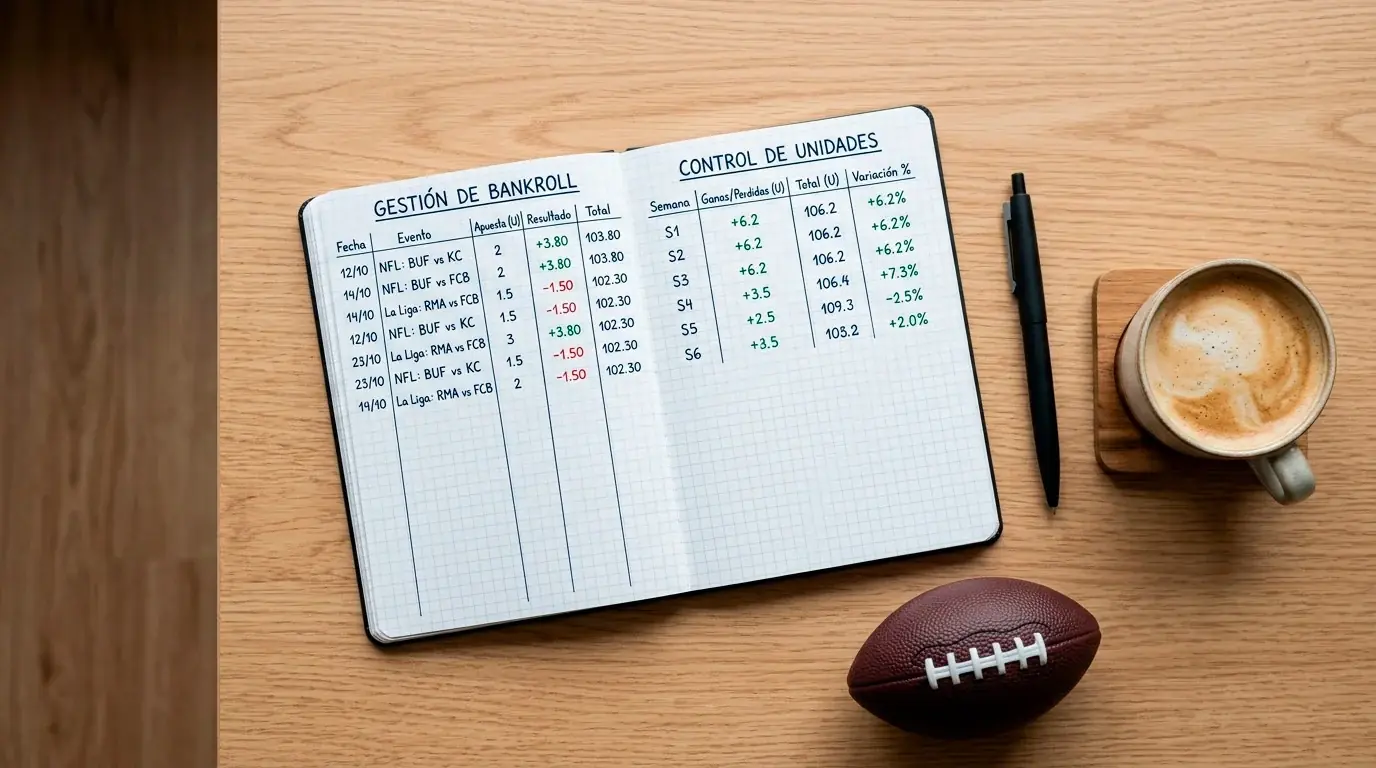 GESTIÓN DE BANKROLL
Fecha Evento Apuesta (U) Resultado Total
12/10 NFL: BUF vs KC 2 +3.80 103.80
14/10 NFL: BUF vs FCB 2 +3.80 103.80
14/10 La Liga: RMA vs FCB 1.5 -1.50 102.30
12/10 NFL: BUF vs KC 1.5 -1.50 102.30
23/10 La Liga: RMA vs FCB 3 +3.80 102.30
23/10 NFL: BUF vs KC 1.5 -1.50 102.30
14/10 La Liga: RMA vs FCB 2 -1.50 102.30
CONTROL DE UNIDADES
Semana Ganas/Perdidas (U) Total (U) Variación %
S1 +6.2 106.2 +6.2%
S2 +6.2 106.2 +6.2%
S3 +6.2 106.2 +6.2%
S4 +3.5 106.4 +7.3%
S5 +2.5 109.3 -2.5%
S6 +3.5 103.2 +2.0%